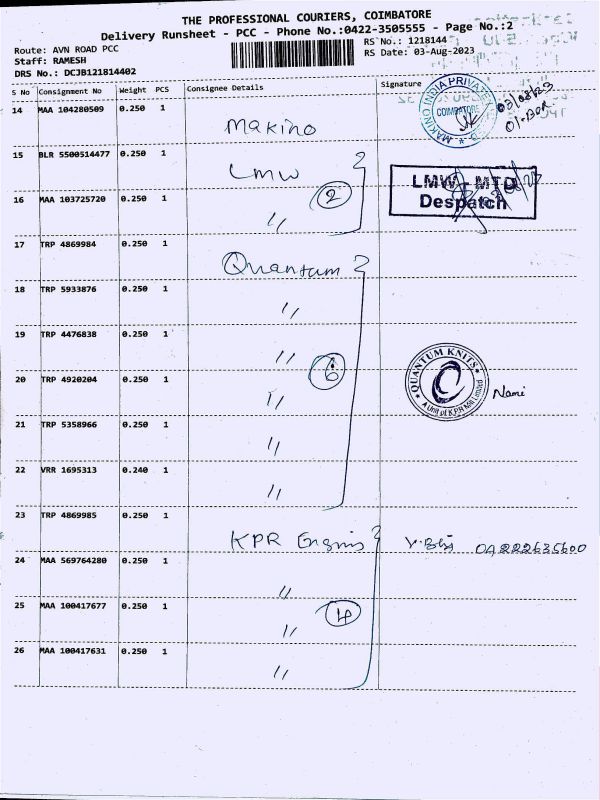 THE PROFESSIONAL COURIERS, COIMBATORE
Delivery Runsheet - PCC - Phone No.:0422-3505555 - Page No.:2
Route: AVN ROAD PCC
Staff: RAMESH
DRS No.: DCJB121814402
RS No.: 1218144
RS Date: 03-Aug-2023
S No Consignment No Weight PCS Consignee Details Signature
14 MAA 104280509 0.250 1 Makino
MAKINO INDIA PRIVATE COIMBATORE
03/08/23
15 BLR 5500514477 0.250 1 LMW
16 MAA 103725720 0.250 1 " 2
LMW - MTD
Despatch
17 TRP 4869984 0.250 1 Quantum
18 TRP 5933876 0.250 1 "
19 TRP 4476838 0.250 1 "
20 TRP 4920204 0.250 1 " 6
QUANTUM KNITS
A Unit of K.P.R Mill Limited
21 TRP 5358966 0.250 1 "
22 VRR 1695313 0.240 1 "
23 TRP 4869985 0.250 1 KPR
24 MAA 569764280 0.250 1 "
25 MAA 100417677 0.250 1 " 4
26 MAA 100417631 0.250 1 "